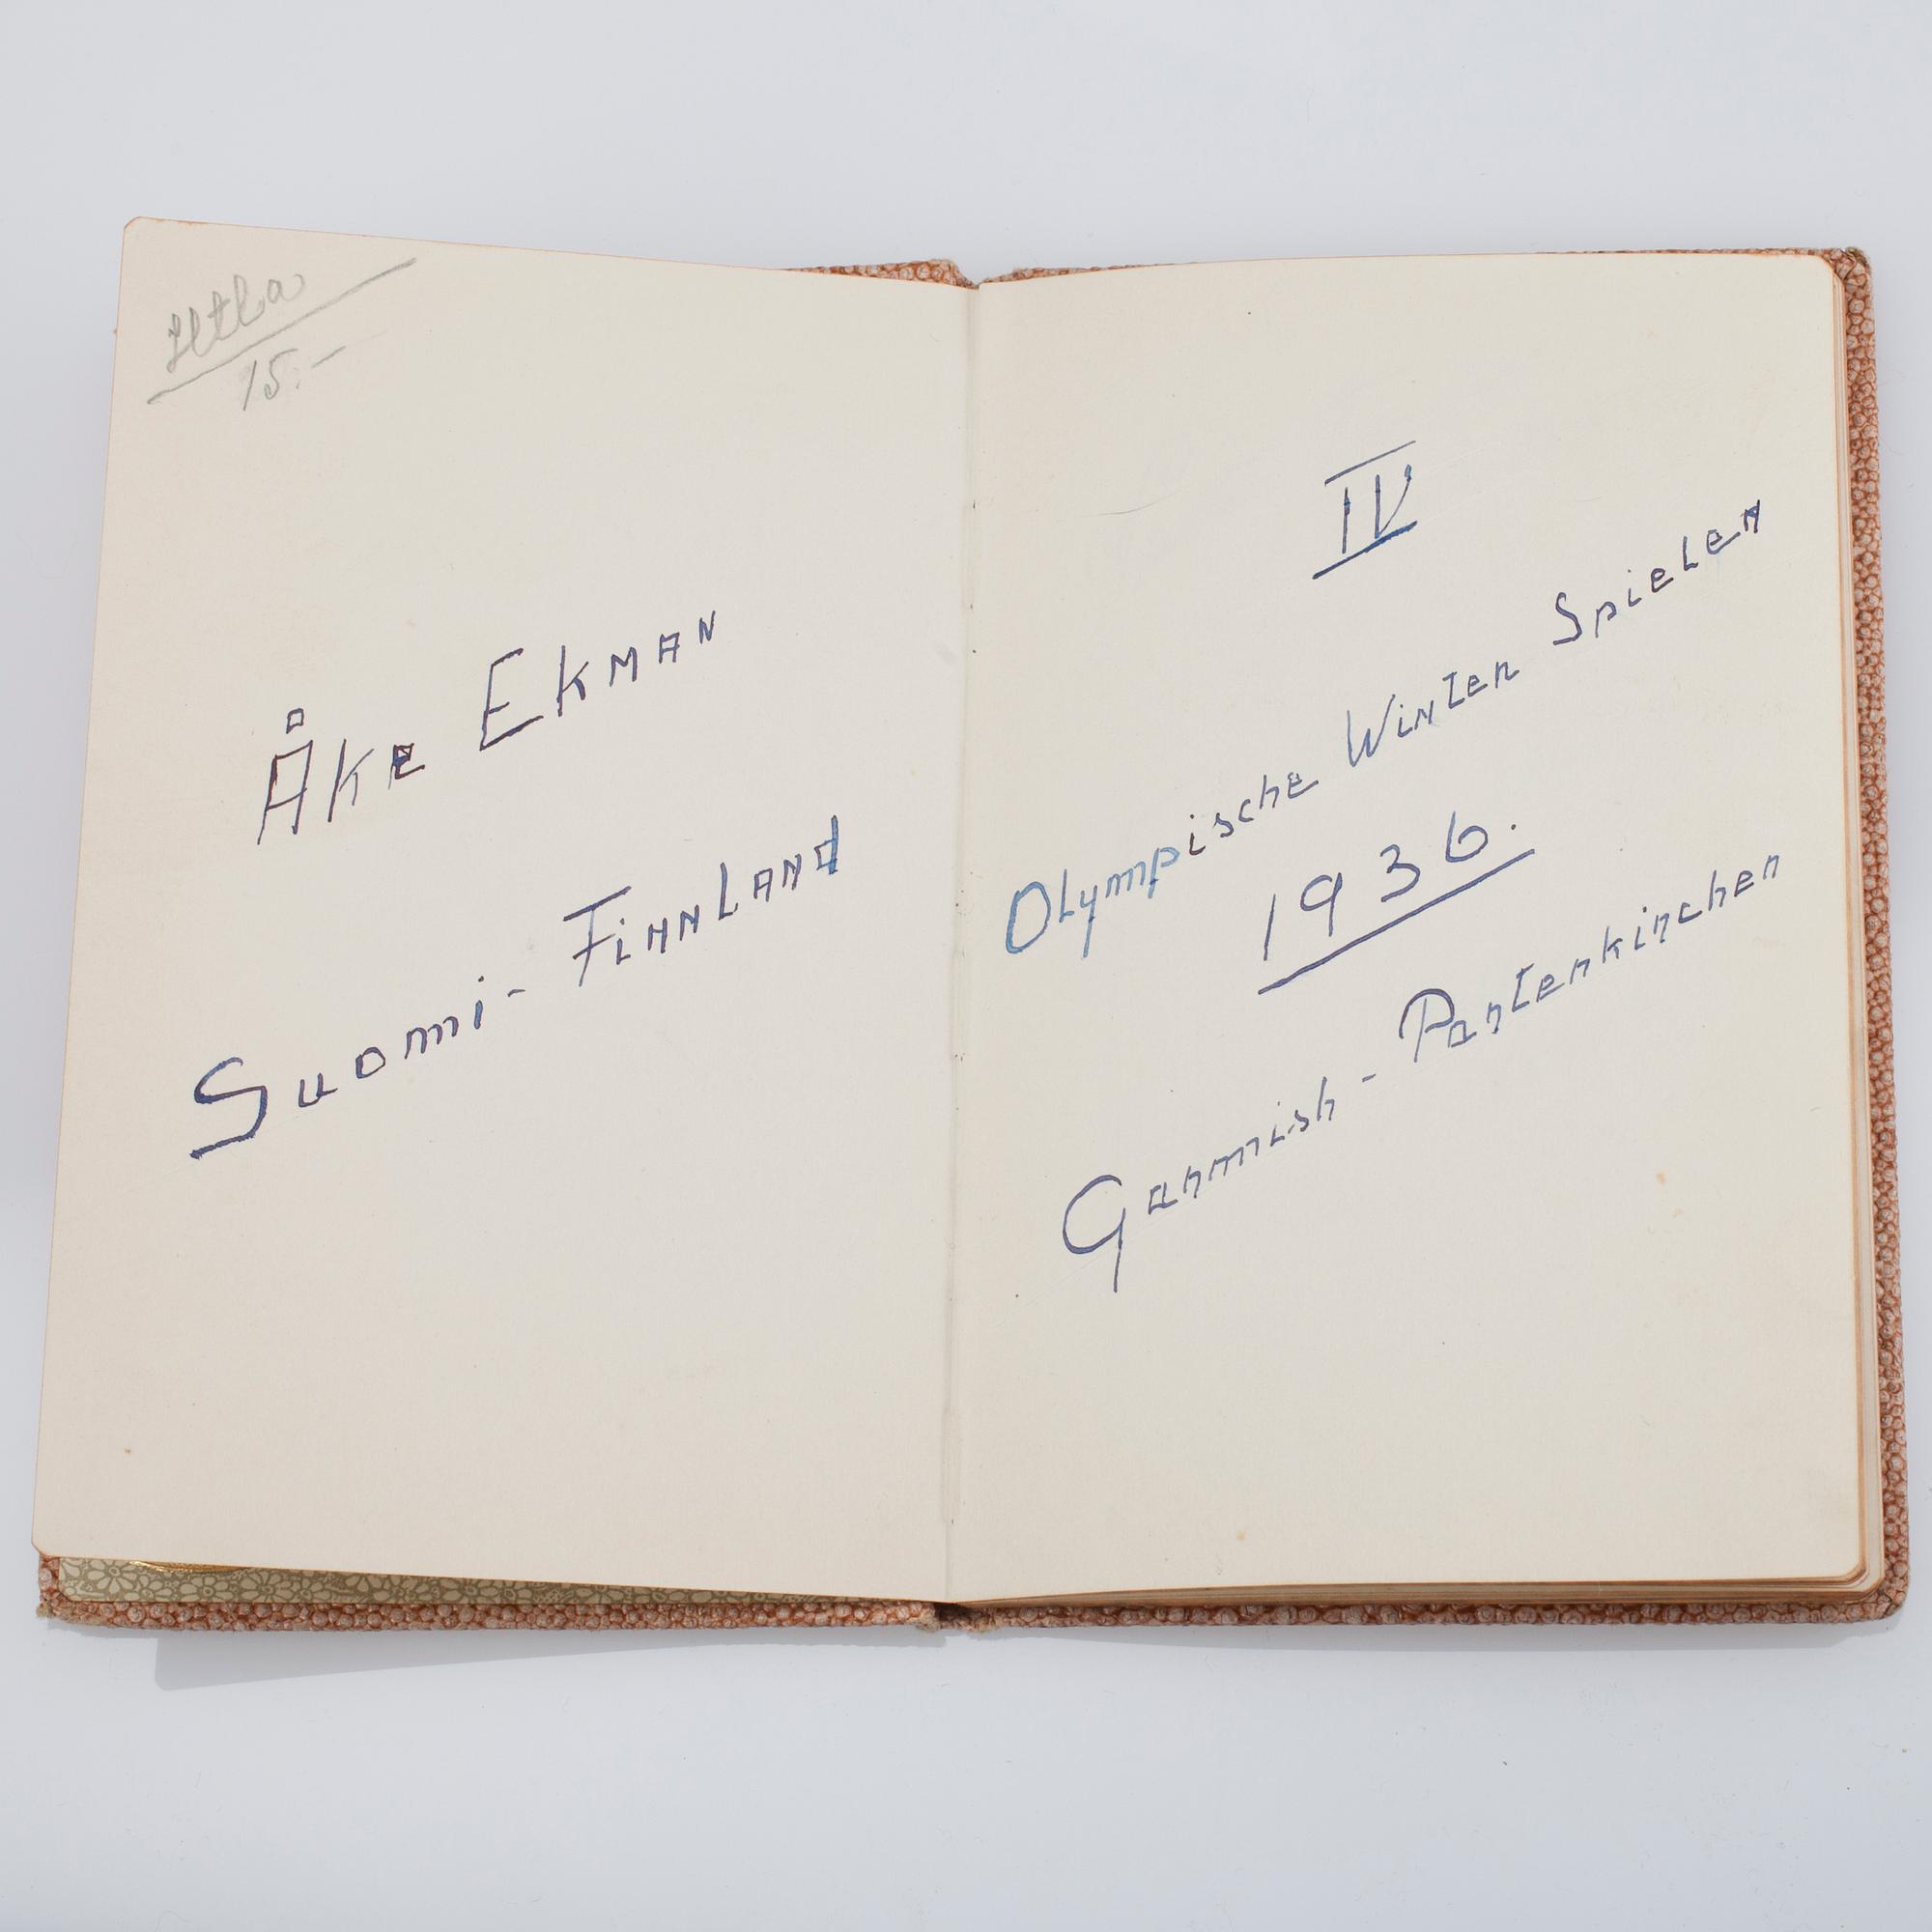 15.-
Åke Ekman
Suomi - Finnland
IV
Olympische Winter Spielen
1936.
Garmish - Partenkirchen